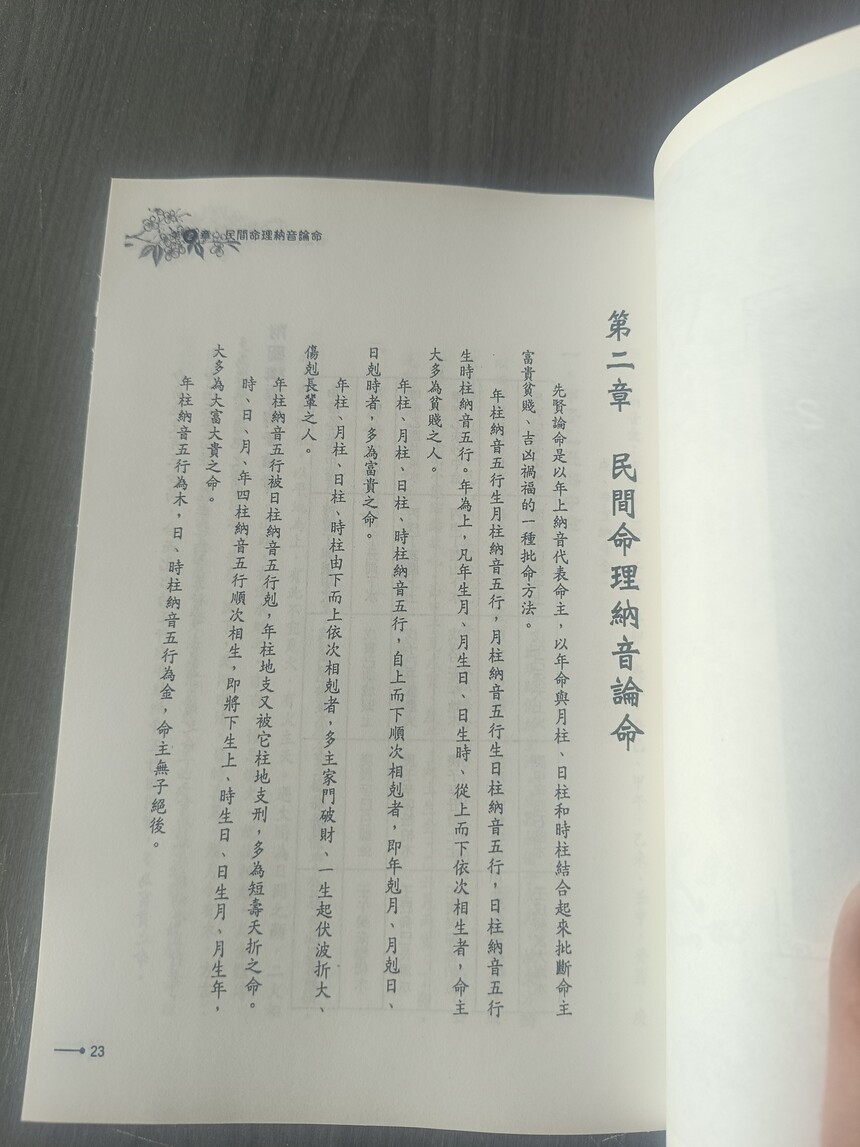 第二章 民間命理納音論命
第二章 民間命理納音論命
先賢論命是以年上納音代表命主，以年命與月柱、日柱和時柱結合起來批斷命主
富貴貧賤、吉凶禍福的一種批命方法。
年柱納音五行生月柱納音五行，月柱納音五行生日柱納音五行，日柱納音五行
生時柱納音五行。年為上，凡年生月、月生日、日生時、從上而下依次相生者，命主
大多為貧賤之人。
年柱、月柱、日柱、時柱納音五行，自上而下順次相剋者，即年剋月、月剋日、
日剋時者，多為富貴之命。
年柱、月柱、日柱、時柱由下而上依次相剋者，多主家門破財、一生起伏波折大、
傷剋長輩之人。
年柱納音五行被日柱納音五行剋，年柱地支又被它柱地支刑，多為短壽夭折之命。
時、日、月、年四柱納音五行順次相生，即將下生上、時生日、日生月、月生年，
大多為大富大貴之命。
年柱納音五行為木，日、時柱納音五行為金，命主無子絕後。
23